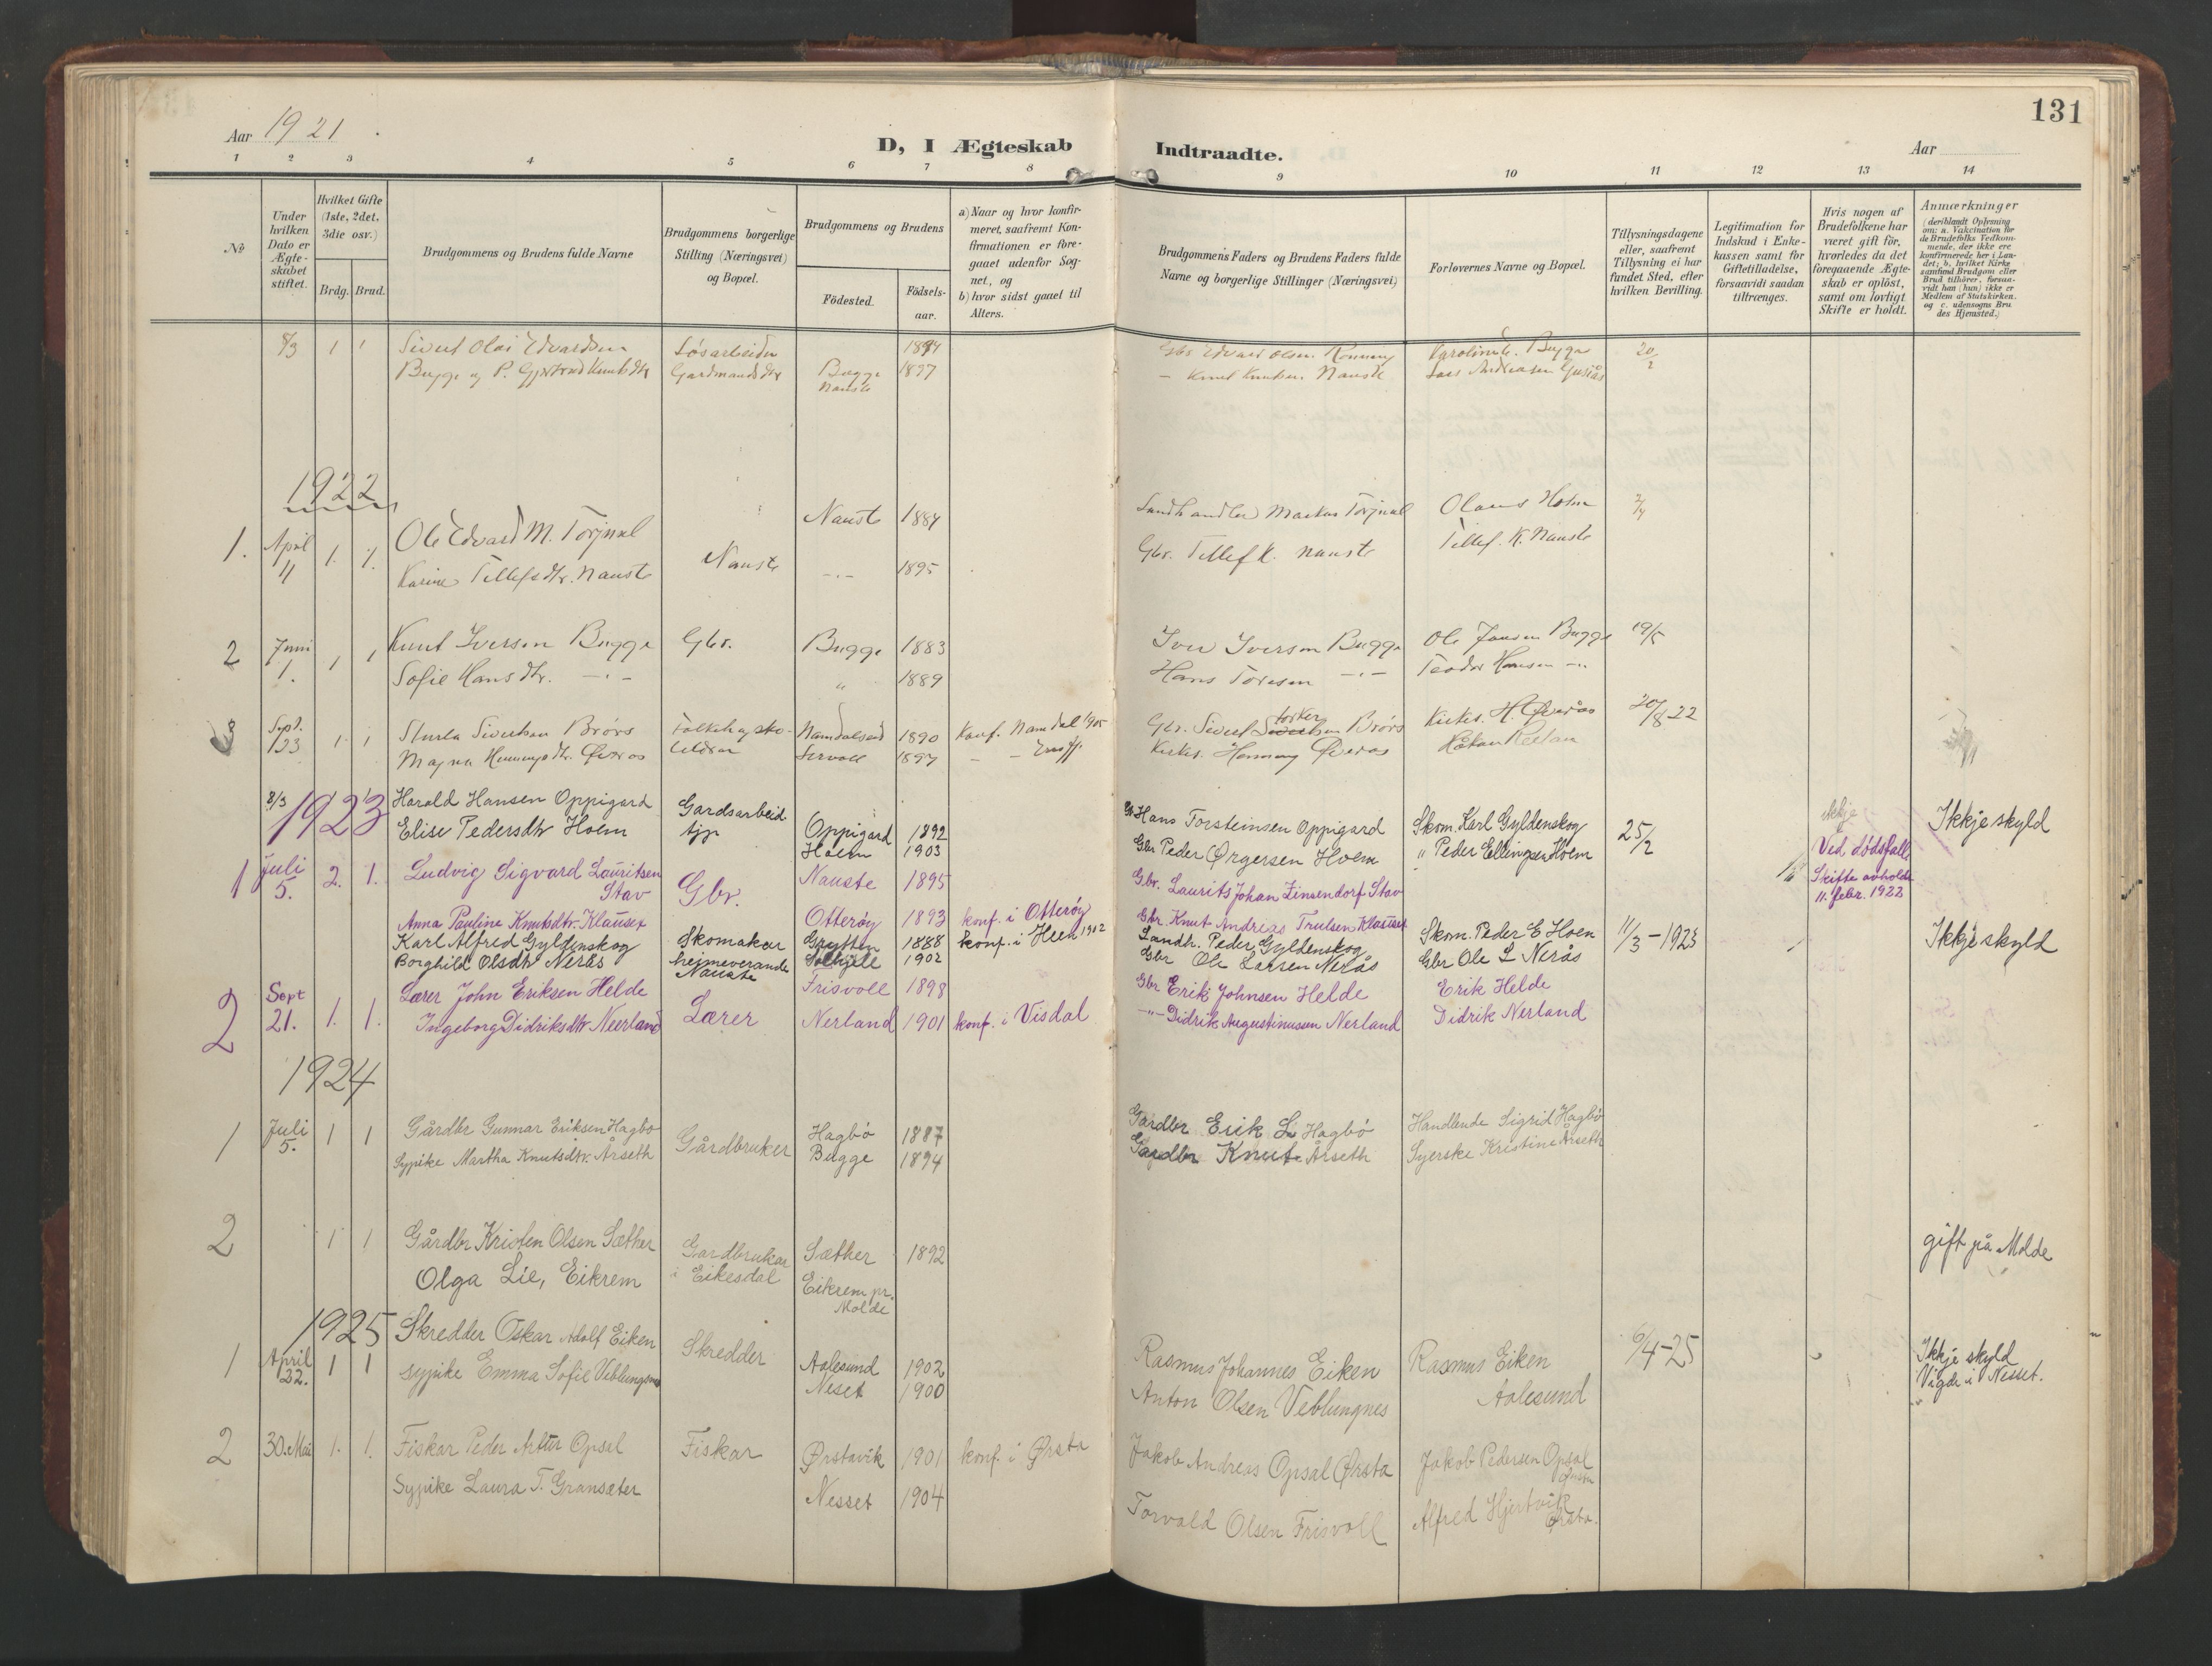 131
Aar 1921.
D, I Ægteskab Indtraadte.
Aar
1 2 3 4 5 6 7 8 9 10 11 12 13 14
No
Under hvilken Dato er Ægteskabet stiftet.
Hvilket Gifte (1ste, 2det, 3die osv.)
Brdg. Brud.
Brudgommens og Brudens fulde Navne
Brudgommens borgerlige Stilling (Næringsvei) og Bopæl.
Brudgommens og Brudens
Födested. Födselsaar.
a) Naar og hvor konfirmeret, saafremt Konfirmationen er foregaaet udenfor Sognet, og
b) hvor sidst gaaet til Alters.
Brudgommens Faders og Brudens Faders fulde Navne og borgerlige Stillinger (Næringsvei)
Forlovernes Navne og Bopæl.
Tillysningsdagene eller, saafremt Tillysning ei har fundet Sted, efter hvilken Bevilling.
Legitimation for Indskud i Enkekassen samt for Giftetilladelse, forsaavidt saadan tiltrænges.
Hvis nogen af Brudefolkene har været gift för, hvorledes da det foregaaende Ægteskab er oplöst, samt om lovligt Skifte er holdt.
Anmærkninger
(deriblandt Oplysning om: a. Vakcination för de Brudefolks Vedkommende, der ikke ere konfirmerede her i Landet; b. hvilket Kirkesamfund Brudgom eller Brud tilhörer, forsaavidt han (hun) ikke er Medlem af Statskirken. og c. udensogns Brudes Hjemsted.)
8/3 1 1 Sivert Olai Edvardsen Løsarbeider 1894 Gbr Edvard Olsen Karoline Bugge 20/2
Bugge og P. Gjertrud Knutsdtr Gardmandsdtr Bugge 1897 - Knut Knutsen Nauste Lars Andreasen
Nauste
1922
1. April 4 1. 1. Ole Edvard M. Torjul Nauste 1884 Landhandler Markus Torjul Olaus Holm 2/4
Karine Tellefsdtr. Nauste Nauste -"- 1895 Gbr. Tellef K. Nauste Tellef. K. Nauste
2 Juni 1. 1 1 Knut Iversen Bugge Gbr. Bugge 1883 Iver Iversen Bugge Ole Jansen Bugge 19/5
Sofie Hansdtr. -"- " 1889 Hans Toresen -"- Teodor Hansen -"-
3 Sept. 23 1. 1 Sturla Sivertsen Brørs Folkehøgsko- Namdalseid 1890 Konf. Namdal 1905 Gbr. Sivert Brørs Kirkes. H. Øverås 20/8 22
Magna Henningsdtr. Øverås 1897 Kirkes. Henning Øverås Håkan Reitan
1923
8/3 1 1 Harald Hansen Oppigard Gardsarbeid Oppigard 1892 Gbr Hans Torsteinsen Oppigard Skom. Karl Gyldenskog 25/2 Ikkje skyld
Elise Pedersdtr Hoem Hoem 1903 Gbr Peder Ørgersen Hoem " Peder Ellingsen Hoem
1 Juli 5. 2. 1. Ludvig Sigvard Lauritsen Stav Gbr. Nauste 1895 Gbr. Laurits Johan Zinsendorf Stav Ved dødsfall
Skifte avholdt 11. febr. 1922
Anna Pauline Knutsdtr. Klauset Otterøy 1893 konf. i Otterøy Gbr. Knut Andreas Trulsen Klauset
Karl Alfred Gyldenskog Skomakar Grytten 1888 konf. i Heen 1902 Landh. Peder Gyldenskog Skom. Peder E Hoem 11/3-1923 Ikkje skyld
Borghild Olsdtr Nerås heimeverande Nauste 1902 Gbr Ole Larsen Nerås Gbr Ole L Nerås
2 Sept 21. 1. 1. Lærer John Eriksen Helde Lærer Frisvoll 1898 Gbr Erik Johnsen Helde Erik Helde
Ingeborg Didriksdtr Neerland Nerland 1901 konf. i Visdal -"- Didrik Augustinussen Nerland Didrik Nerland
1924
1 Juli 5. 1 1 Gårdbr Gunnar Eriksen Hagbø Gårdbruker Hagbø 1887 Gårdbr Erik L. Hagbø Handlende Sigrid Hagbø
Sypike Martha Knutsdtr. Årseth Bugge 1894 Gardbr Knut Årseth Syerske Kristine Årseth
2 1 1 Gårdbr Kristen Olsen Sæther Gardbrukar i Eikesdal Sæther 1892 gift på Molde
Olga Lie, Eikrem Eikrem pr. Molde
1925
1 April 22. 1 1 Skredder Oskar Adolf Eiken Skredder Aalesund 1902 Rasmus Johannes Eiken Rasmus Eiken 6/4-25 Ikkje skyld
sypike Emma Sofie Veblungsnes Neset 1900 Anton Olsen Veblungnes Aalesund Vigde i Nesset.
2 30. Mai 1. 1. Fiskar Peder Artur Opsal Fiskar Ørstavik 1901 konf. i Ørsta Jakob Andreas Opsal Ørsta Jakob Pedersen Opsal Ørsta
Sypike Laura T. Gransæter Nesset 1904 Torvald Olsen Frisvoll Alfred Hjertvik Ørsta.